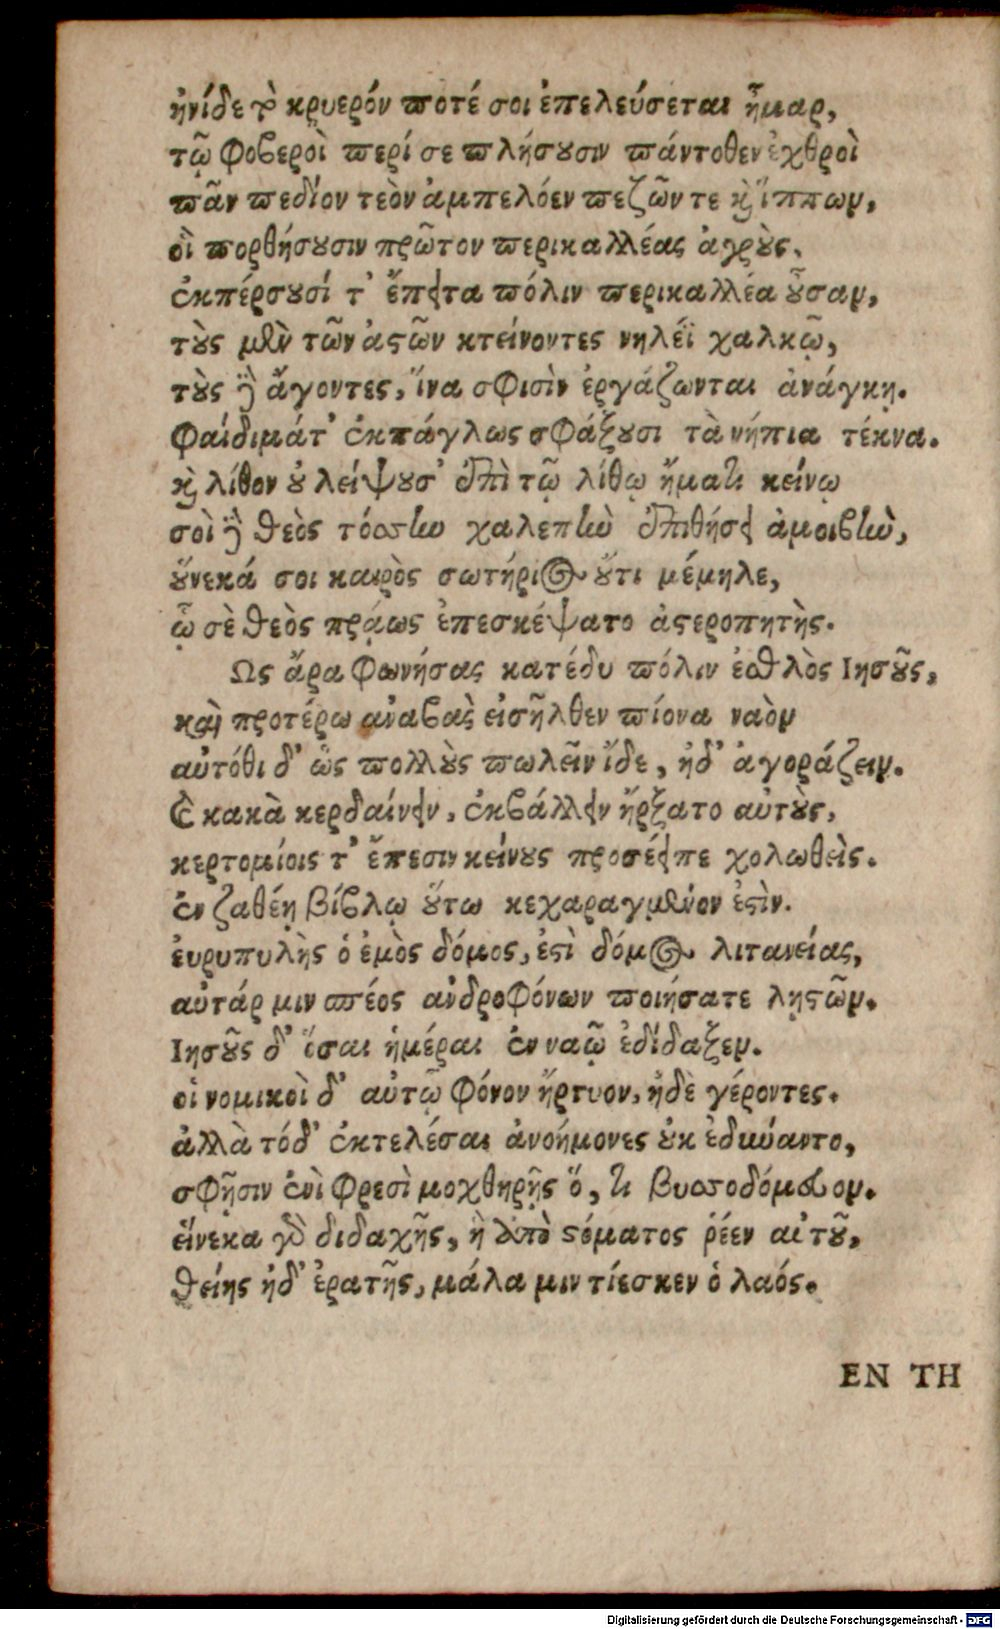 ἠνίδε τὸ κρυερόν ποτέ σοι ἐπελεύσεται ἦμαρ,
τῷ φοβεροὶ περί σε πλήσουσιν πάντοθεν ἐχθροὶ
πᾶν πεδίον τεὸν ἀμπελόεν πεζῶν τε καὶ ἵππων,
οἳ πορθήσουσιν πρῶτον περικαλλέας ἀγρούς.
ἐκπέρσουσί τ' ἔπειτα πόλιν περικαλλέα οὖσαν,
τοὺς μὲν τῶν ἀστῶν κτείνοντες νηλέϊ χαλκῷ,
τοὺς δὲ ἄγοντες, ἵνα σφισὶν ἐργάζωνται ἀνάγκῃ.
φαίδιμάτ' ἐκπάγλως σφάξουσι τὰ νήπια τέκνα.
καὶ λίθον οὐ λείψουσ' ἐπὶ τῷ λίθῳ ἤματι κείνῳ
σοὶ δὲ θεὸς τόσστην χαλεπὴν ἐπιθήσει ἀμοιβὴν,
οὕνεκά σοι καιρὸς σωτήριος οὔτι μέμηλε,
ᾧ σὲ θεὸς πράως ἐπεσκέψατο ἀστεροπητὴς.
Ως ἄρα φωνήσας κατέδυ πόλιν ἐσθλὸς Ιησοῦς,
καὶ προτέρω ἀναβὰς εἰσῆλθεν πίονα ναὸν
αὐτόθι δ' ὡς πολλοὺς πωλεῖν ἴδε, ἠδ' ἀγοράζειν.
καὶ κακὰ κερδαίνειν, ἐκβάλλειν ἤρξατο αὐτοὺς,
κερτομίοις τ' ἔπεσιν κείνους προσέειπε χολωθεὶς.
ἐν ζαθέῃ βίβλῳ οὕτω κεχαραγμένον ἐστὶν.
ἐυρυπυλὴς ὁ ἐμὸς δόμος, ἐστὶ δόμος λιτανείας,
αὐτάρ μιν σπέος ἀνδροφόνων ποιήσατε λῃστῶν.
Ιησοῦς δ' ὅσαι ἡμέραι ἐν ναῷ ἐδίδαξεν.
οἱ νομικοὶ δ' αὐτῷ φόνον ἤρτυον, ἠδὲ γέροντες.
ἀλλὰ τόδ' ἐκτελέσαι ἀνοήμονες οὐκ ἐδύναντο,
σφῇσιν ἐνὶ φρεσὶ μοχθηρῇς ὅ, τι βυσσοδόμευον.
εἵνεκα γὰρ διδαχῆς, ἣ ἀπὸ στόματος ῥέεν αὐτοῦ,
θείης ἠδ' ἐρατῆς, μάλα μιν τίεσκεν ὁ λαός.
ΕΝ ΤΗ
Digitalisierung gefördert durch die Deutsche Forschungsgemeinschaft - DFG